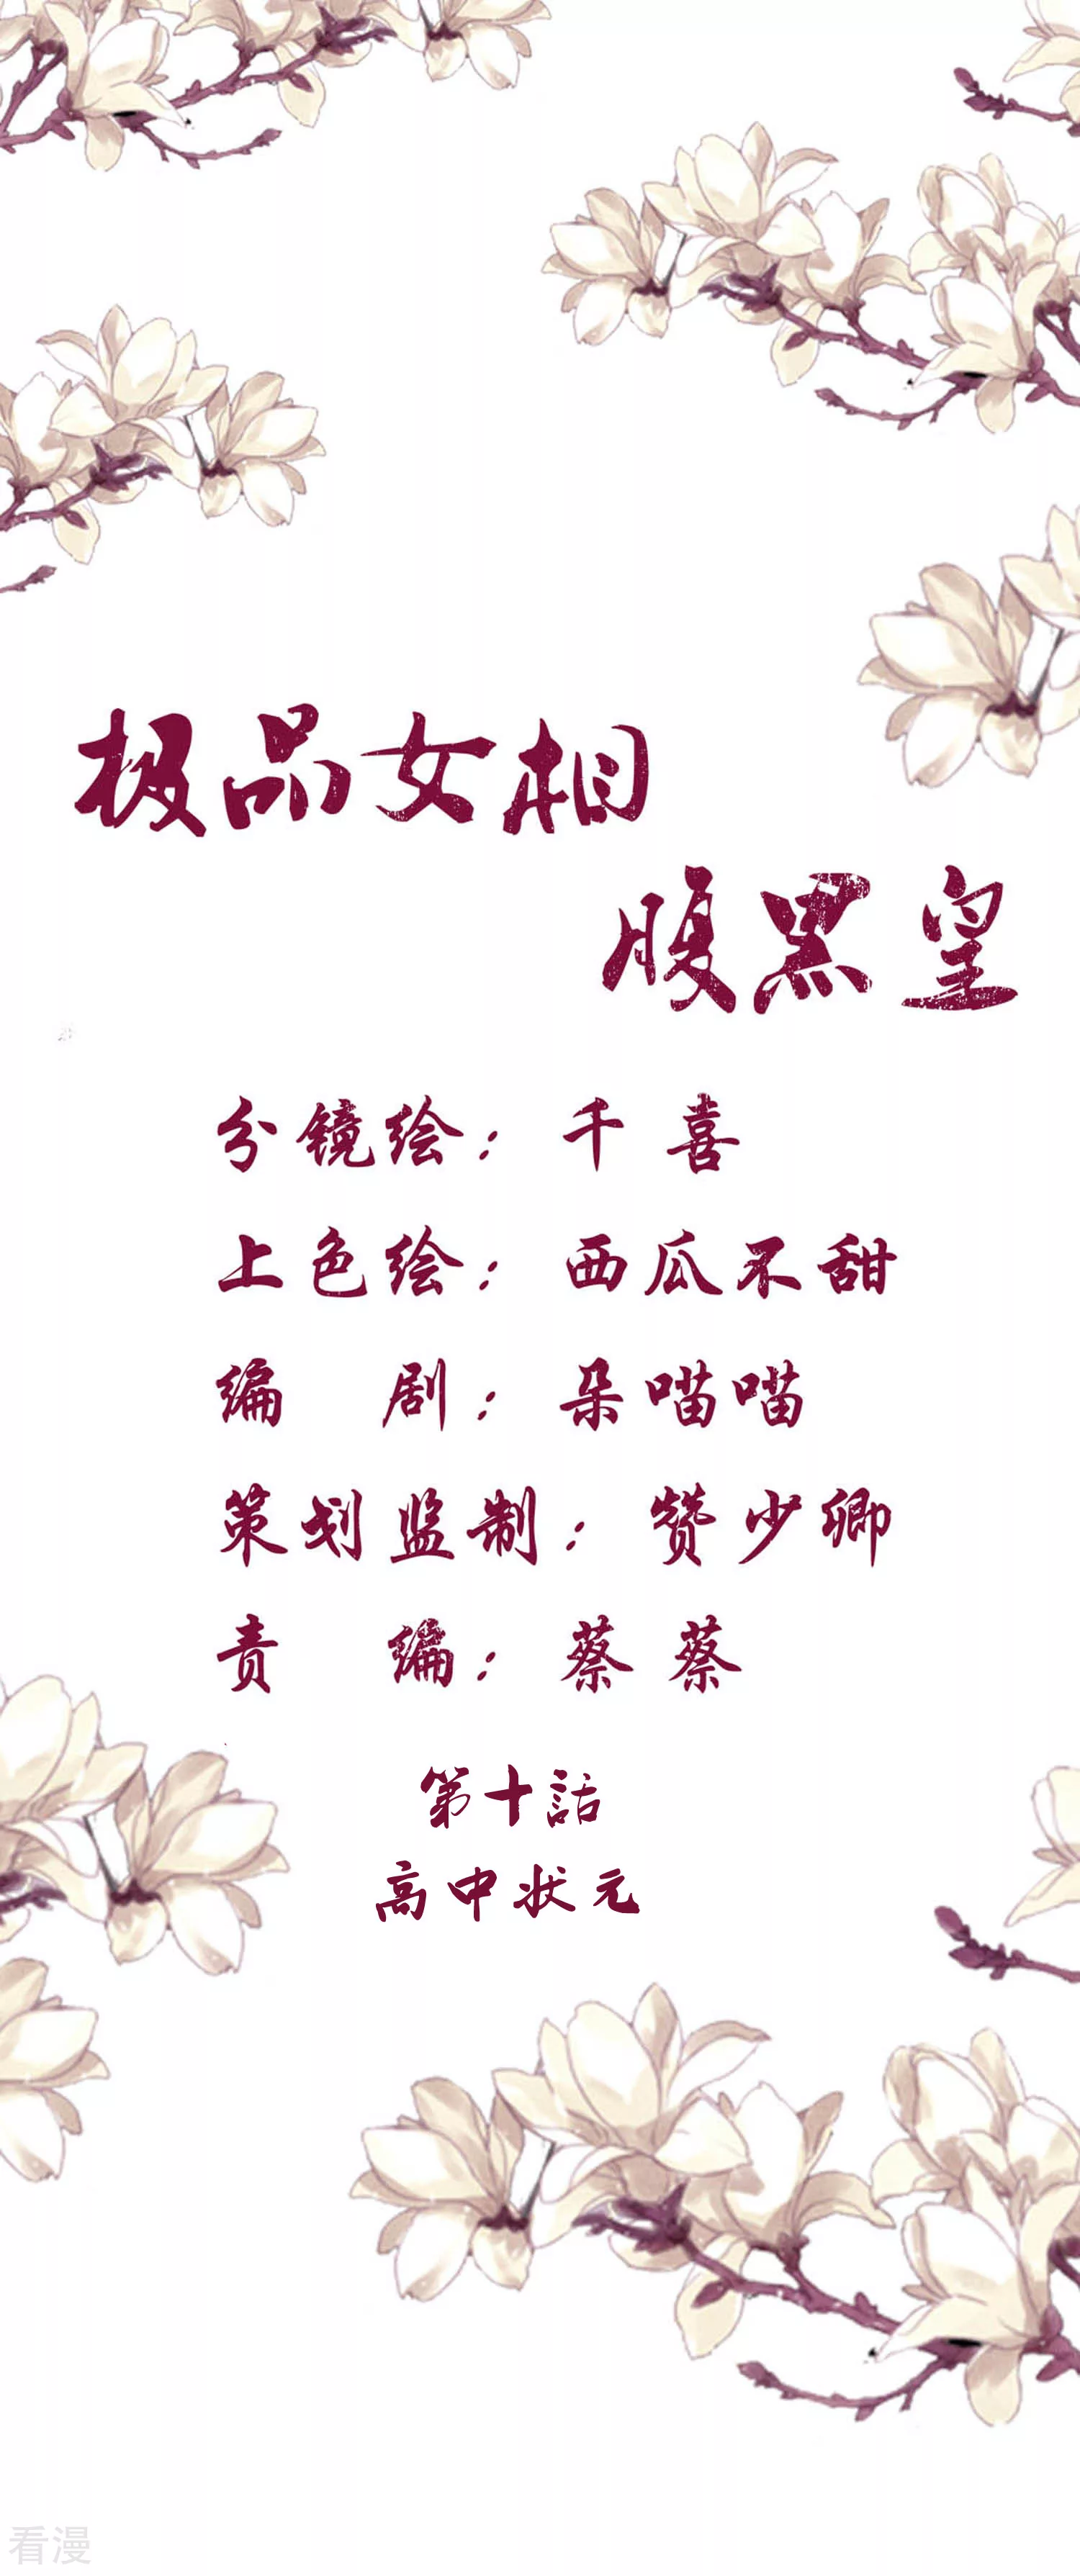 极品女相
腹黑皇
分镜绘：千喜
上色绘：西瓜不甜
编 剧：朵喵喵
策划监制：赞少卿
责 编：蔡蔡
第十話
高中状元
看漫